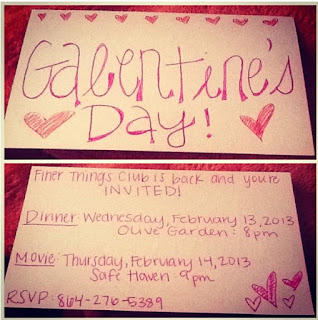 Galentine's
Day!
Finer Things Club is back and you're
INVITED!
Dinner: Wednesday, February 13, 2013
Olive Garden: 8pm
Movie: Thursday, February 14, 2013
Safe Haven: 9pm
RSVP: 864-276-5389